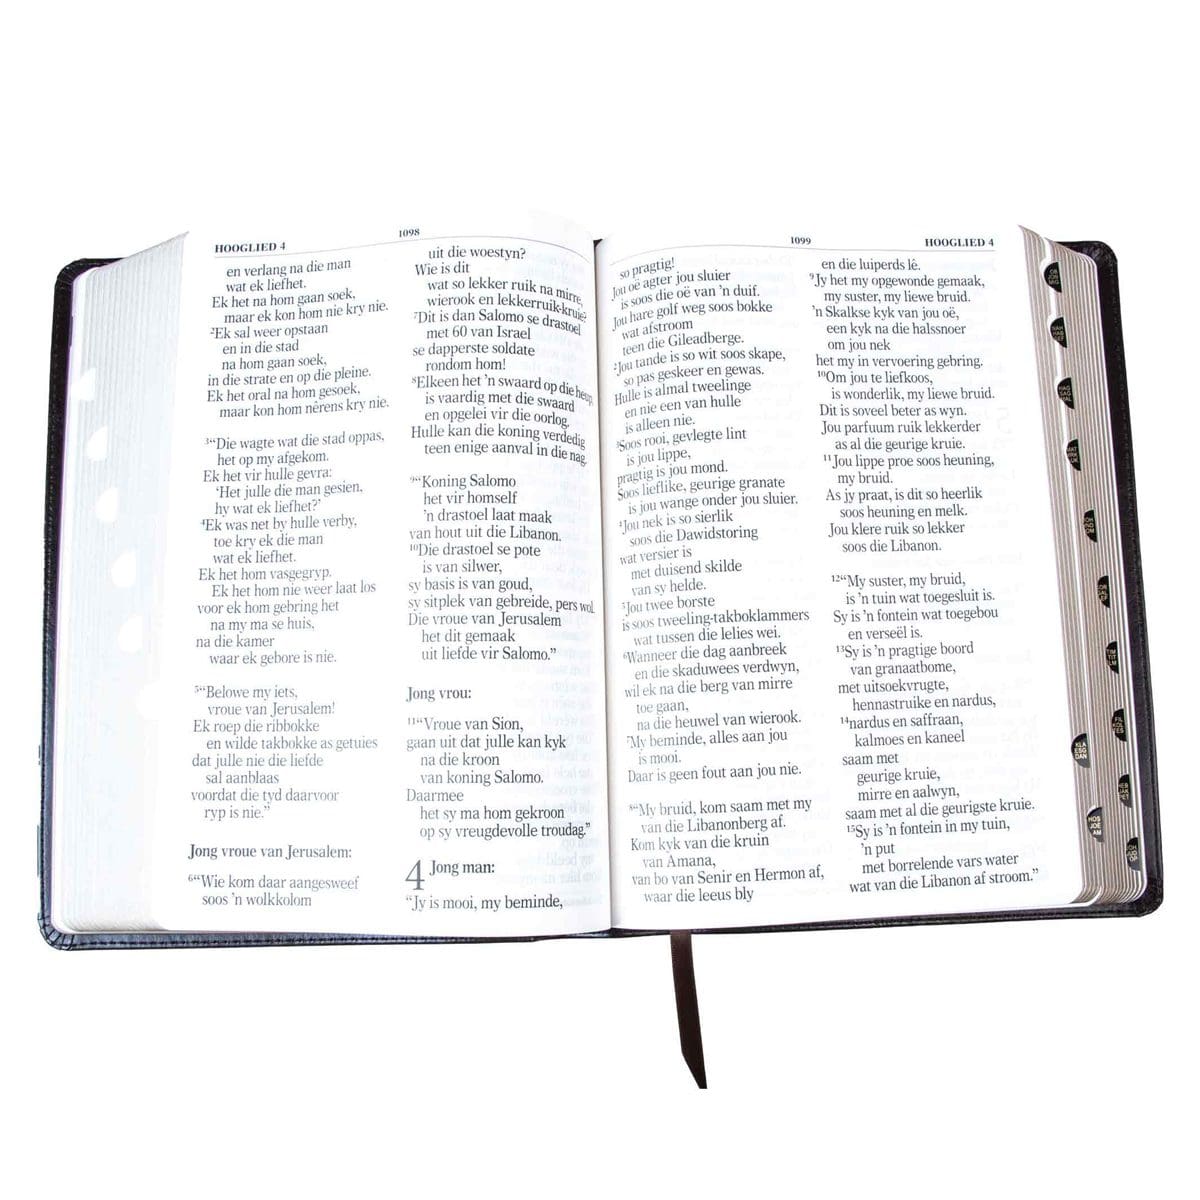 HOOGLIED 4
1098
en verlang na die man
wat ek liefhet.
Ek het na hom gaan soek,
maar ek kon hom nie kry nie.
²Ek sal weer opstaan
en in die stad
na hom gaan soek,
in die strate en op die pleine.
Ek het oral na hom gesoek,
maar kon hom nêrens kry nie.
³“Die wagte wat die stad oppas,
het op my afgekom.
Ek het vir hulle gevra:
‘Het julle die man gesien,
hy wat ek liefhet?’
⁴Ek was net by hulle verby,
toe kry ek die man
wat ek liefhet.
Ek het hom vasgegryp.
Ek het hom nie weer laat los
voor ek hom gebring het
na my ma se huis,
na die kamer
waar ek gebore is nie.
⁵“Belowe my iets,
vroue van Jerusalem!
Ek roep die ribbokke
en wilde takbokke as getuies
dat julle nie die liefde
sal aanblaas
voordat die tyd daarvoor
ryp is nie.”
Jong vroue van Jerusalem:
⁶“Wie kom daar aangesweef
soos ’n wolkkolom
uit die woestyn?
Wie is dit
wat so lekker ruik na mirre,
wierook en lekkerruik-kruie?
⁷Dit is dan Salomo se drastoel
met 60 van Israel
se dapperste soldate
rondom hom!
⁸Elkeen het ’n swaard op die heup,
is vaardig met die swaard
en opgelei vir die oorlog.
Hulle kan die koning verdedig
teen enige aanval in die nag.
⁹“Koning Salomo
het vir homself
’n drastoel laat maak
van hout uit die Libanon.
¹⁰Die drastoel se pote
is van silwer,
sy basis is van goud,
sy sitplek van gebreide, pers wol.
Die vroue van Jerusalem
het dit gemaak
uit liefde vir Salomo.”
Jong vrou:
¹¹“Vroue van Sion,
gaan uit dat julle kan kyk
na die kroon
van koning Salomo.
Daarmee
het sy ma hom gekroon
op sy vreugdevolle troudag.”
4 Jong man:
“Jy is mooi, my beminde,
1099
HOOGLIED 4
so pragtig!
Jou oë agter jou sluier
is soos die oë van ’n duif.
Jou hare golf weg soos bokke
wat afstroom
teen die Gileadberge.
²Jou tande is so wit soos skape,
so pas geskeer en gewas.
Hulle is almal tweelinge
en nie een van hulle
is alleen nie.
³Soos rooi, gevlegte lint
is jou lippe,
pragtig is jou mond.
Soos lieflike, geurige granate
is jou wange onder jou sluier.
⁴Jou nek is so sierlik
soos die Dawidstoring
wat versier is
met duisend skilde
van sy helde.
⁵Jou twee borste
is soos tweeling-takboklammers
wat tussen die lelies wei.
⁶Wanneer die dag aanbreek
en die skaduwees verdwyn,
wil ek na die berg van mirre
toe gaan,
na die heuwel van wierook.
⁷My beminde, alles aan jou
is mooi.
Daar is geen fout aan jou nie.
⁸“My bruid, kom saam met my
van die Libanonberg af.
Kom kyk van die kruin
van Amana,
van bo van Senir en Hermon af,
waar die leeus bly
en die luiperds lê.
⁹Jy het my opgewonde gemaak,
my suster, my liewe bruid.
’n Skalkse kyk van jou oë,
een kyk na die halssnoer
om jou nek
het my in vervoering gebring.
¹⁰Om jou te liefkoos,
is wonderlik, my liewe bruid.
Dit is soveel beter as wyn.
Jou parfuum ruik lekkerder
as al die geurige kruie.
¹¹Jou lippe proe soos heuning,
my bruid.
As jy praat, is dit so heerlik
soos heuning en melk.
Jou klere ruik so lekker
soos die Libanon.
¹²“My suster, my bruid,
is ’n tuin wat toegesluit is.
Sy is ’n fontein wat toegebou
en verseël is.
¹³Sy is ’n pragtige boord
van granaatbome,
met uitsoekvrugte,
hennastruike en nardus,
¹⁴nardus en saffraan,
kalmoes en kaneel
saam met
geurige kruie,
mirre en aalwyn,
saam met al die geurigste kruie.
¹⁵Sy is ’n fontein in my tuin,
’n put
met borrelende vars water
wat van die Libanon af stroom.”
TIM
TIT
KLA
ESG
DAN
HEB
JAK
PET
HOS
JOE
AM